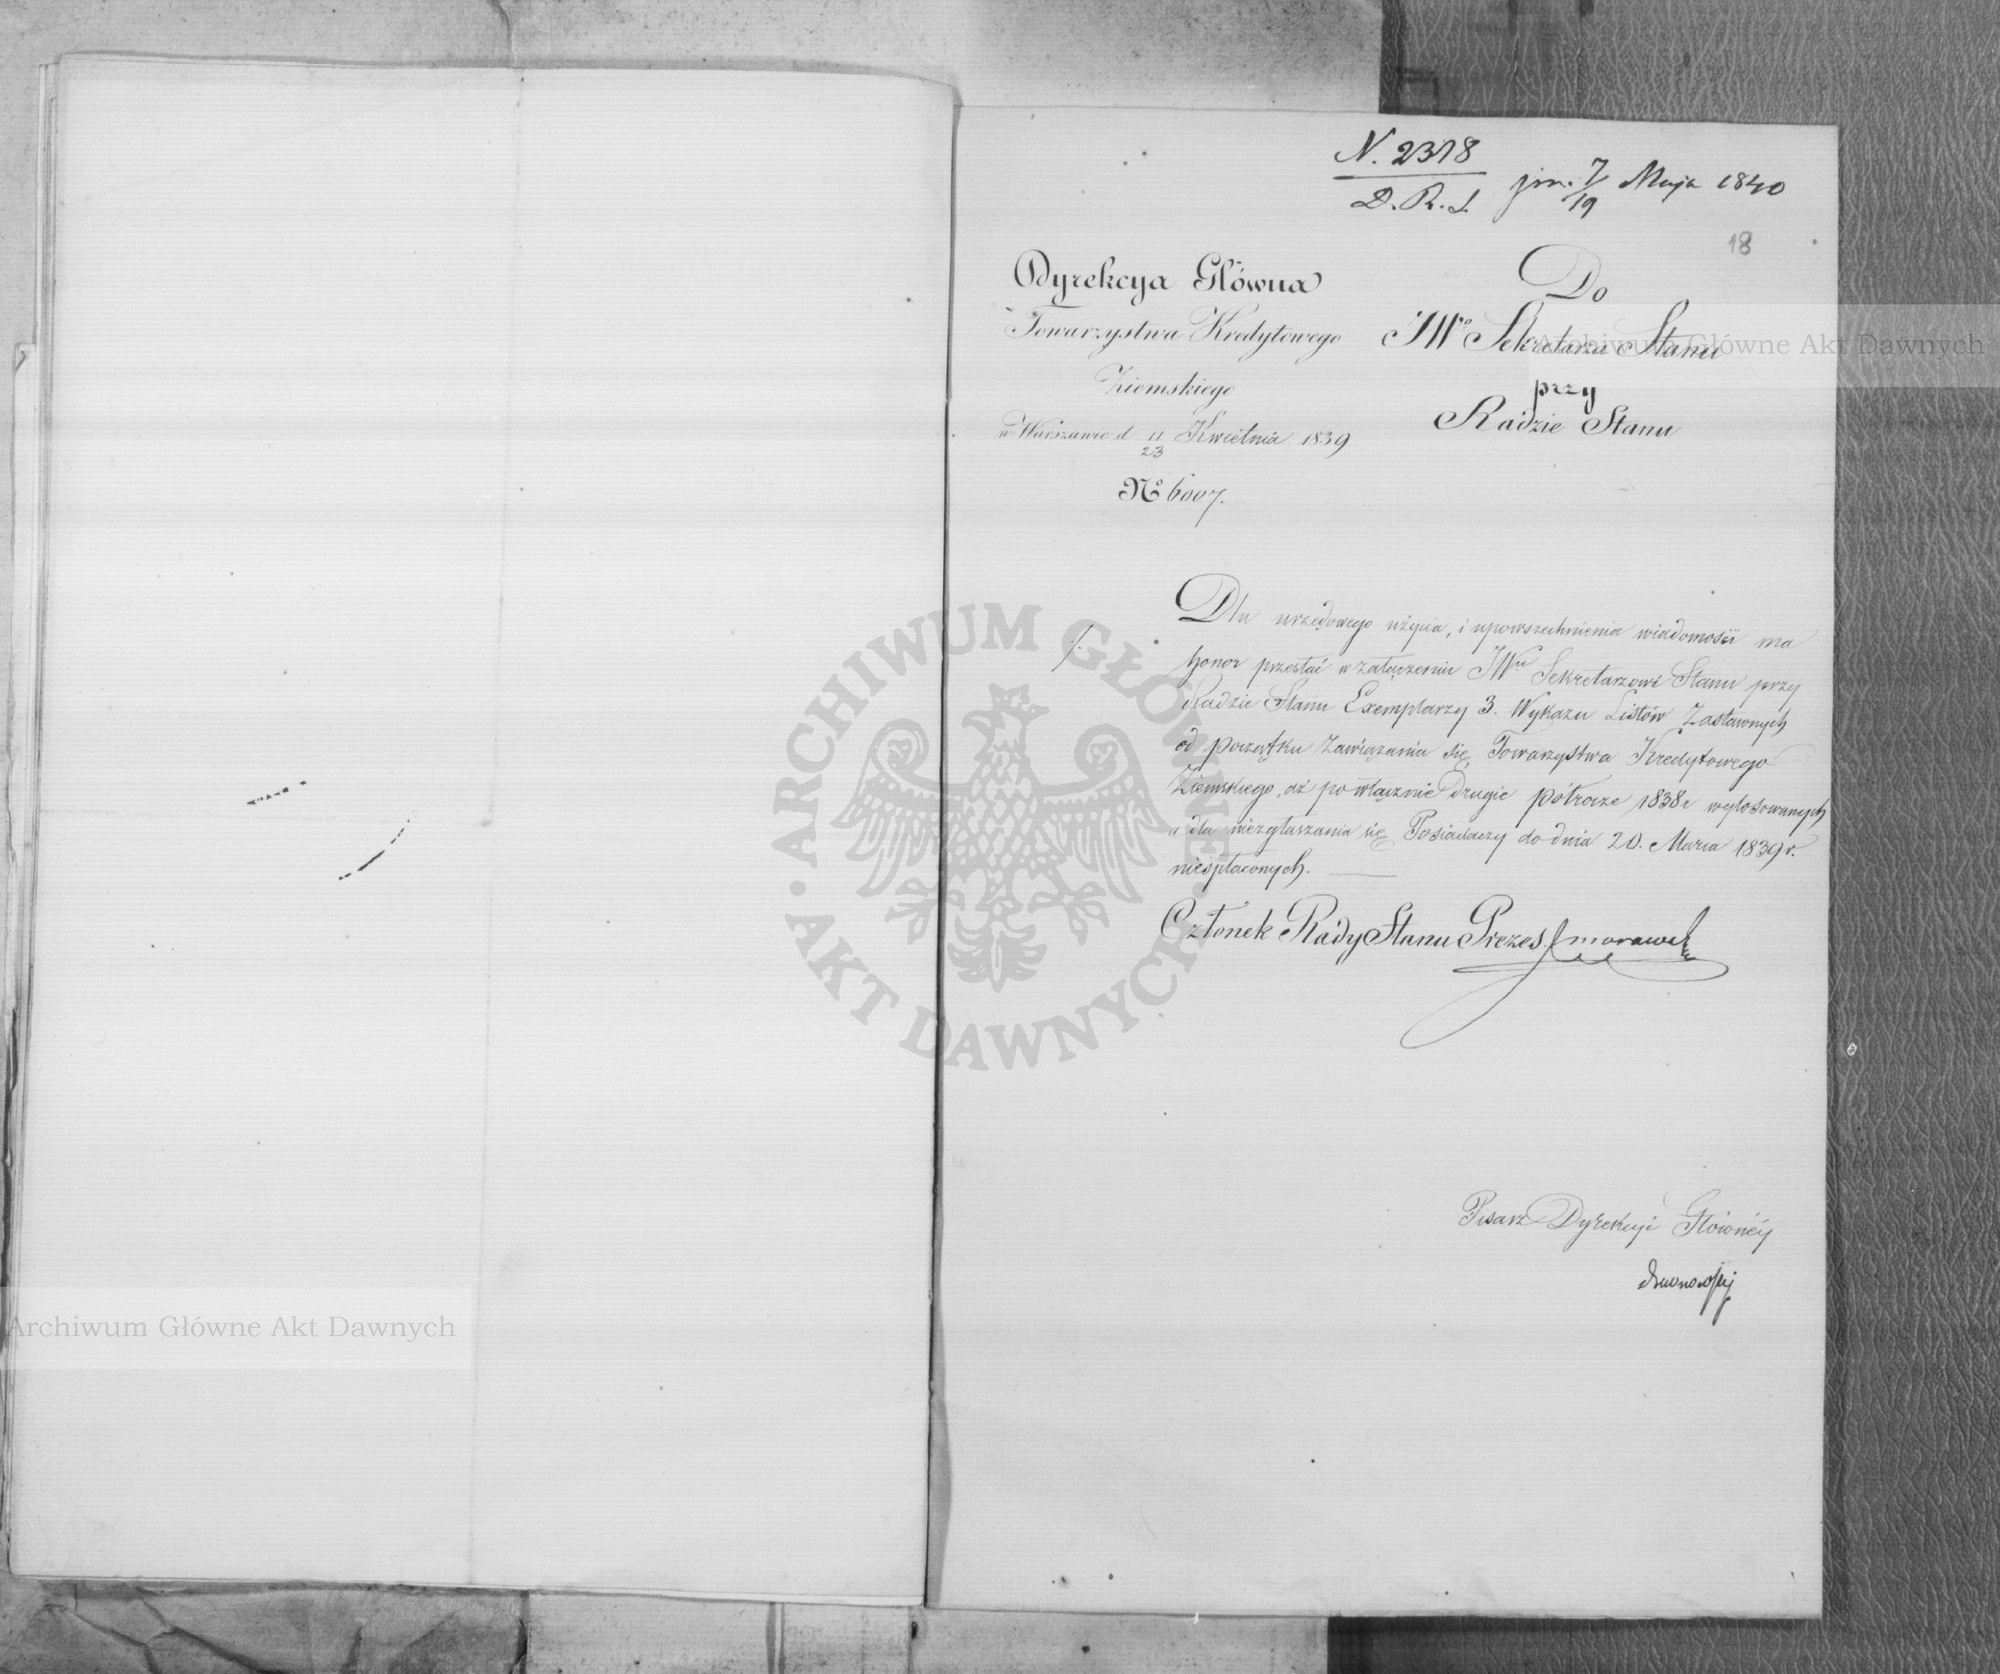 N. 2318
D. R. S. pm. 7/19 Maja 1840
18
Dyrekcya Główna
Towarzystwa Kredytowego
Ziemskiego
w Warszawie d 11/23 Kwietnia 1839
No 6007.
Do
JWo Sekretarza Stanu
przy
Radzie Stanu
Dla urzędowego użycia, i upowszechnienia wiadomości ma
honor przesłać w załączeniu JWu Sekretarzowi Stanu przy
Radzie Stanu Exemplarzy 3. Wykazu Listów Zastawnych
od początku zawiązania się Towarzystwa Kredytowego
Ziemskiego, aż po włącznie Drugie półrocze 1838r wylosowanych
a dla niezgłaszania się Posiadaczy do dnia 20. Marca 1839 r.
niespłaconych.
Członek Rady Stanu Prezes Jmorawski
Pisarz Dyrekcyi Głównéy
Archiwum Główne Akt Dawnych
Archiwum Główne Akt Dawnych
ARCHIWUM GŁÓWNE · AKT DAWNYCH ·